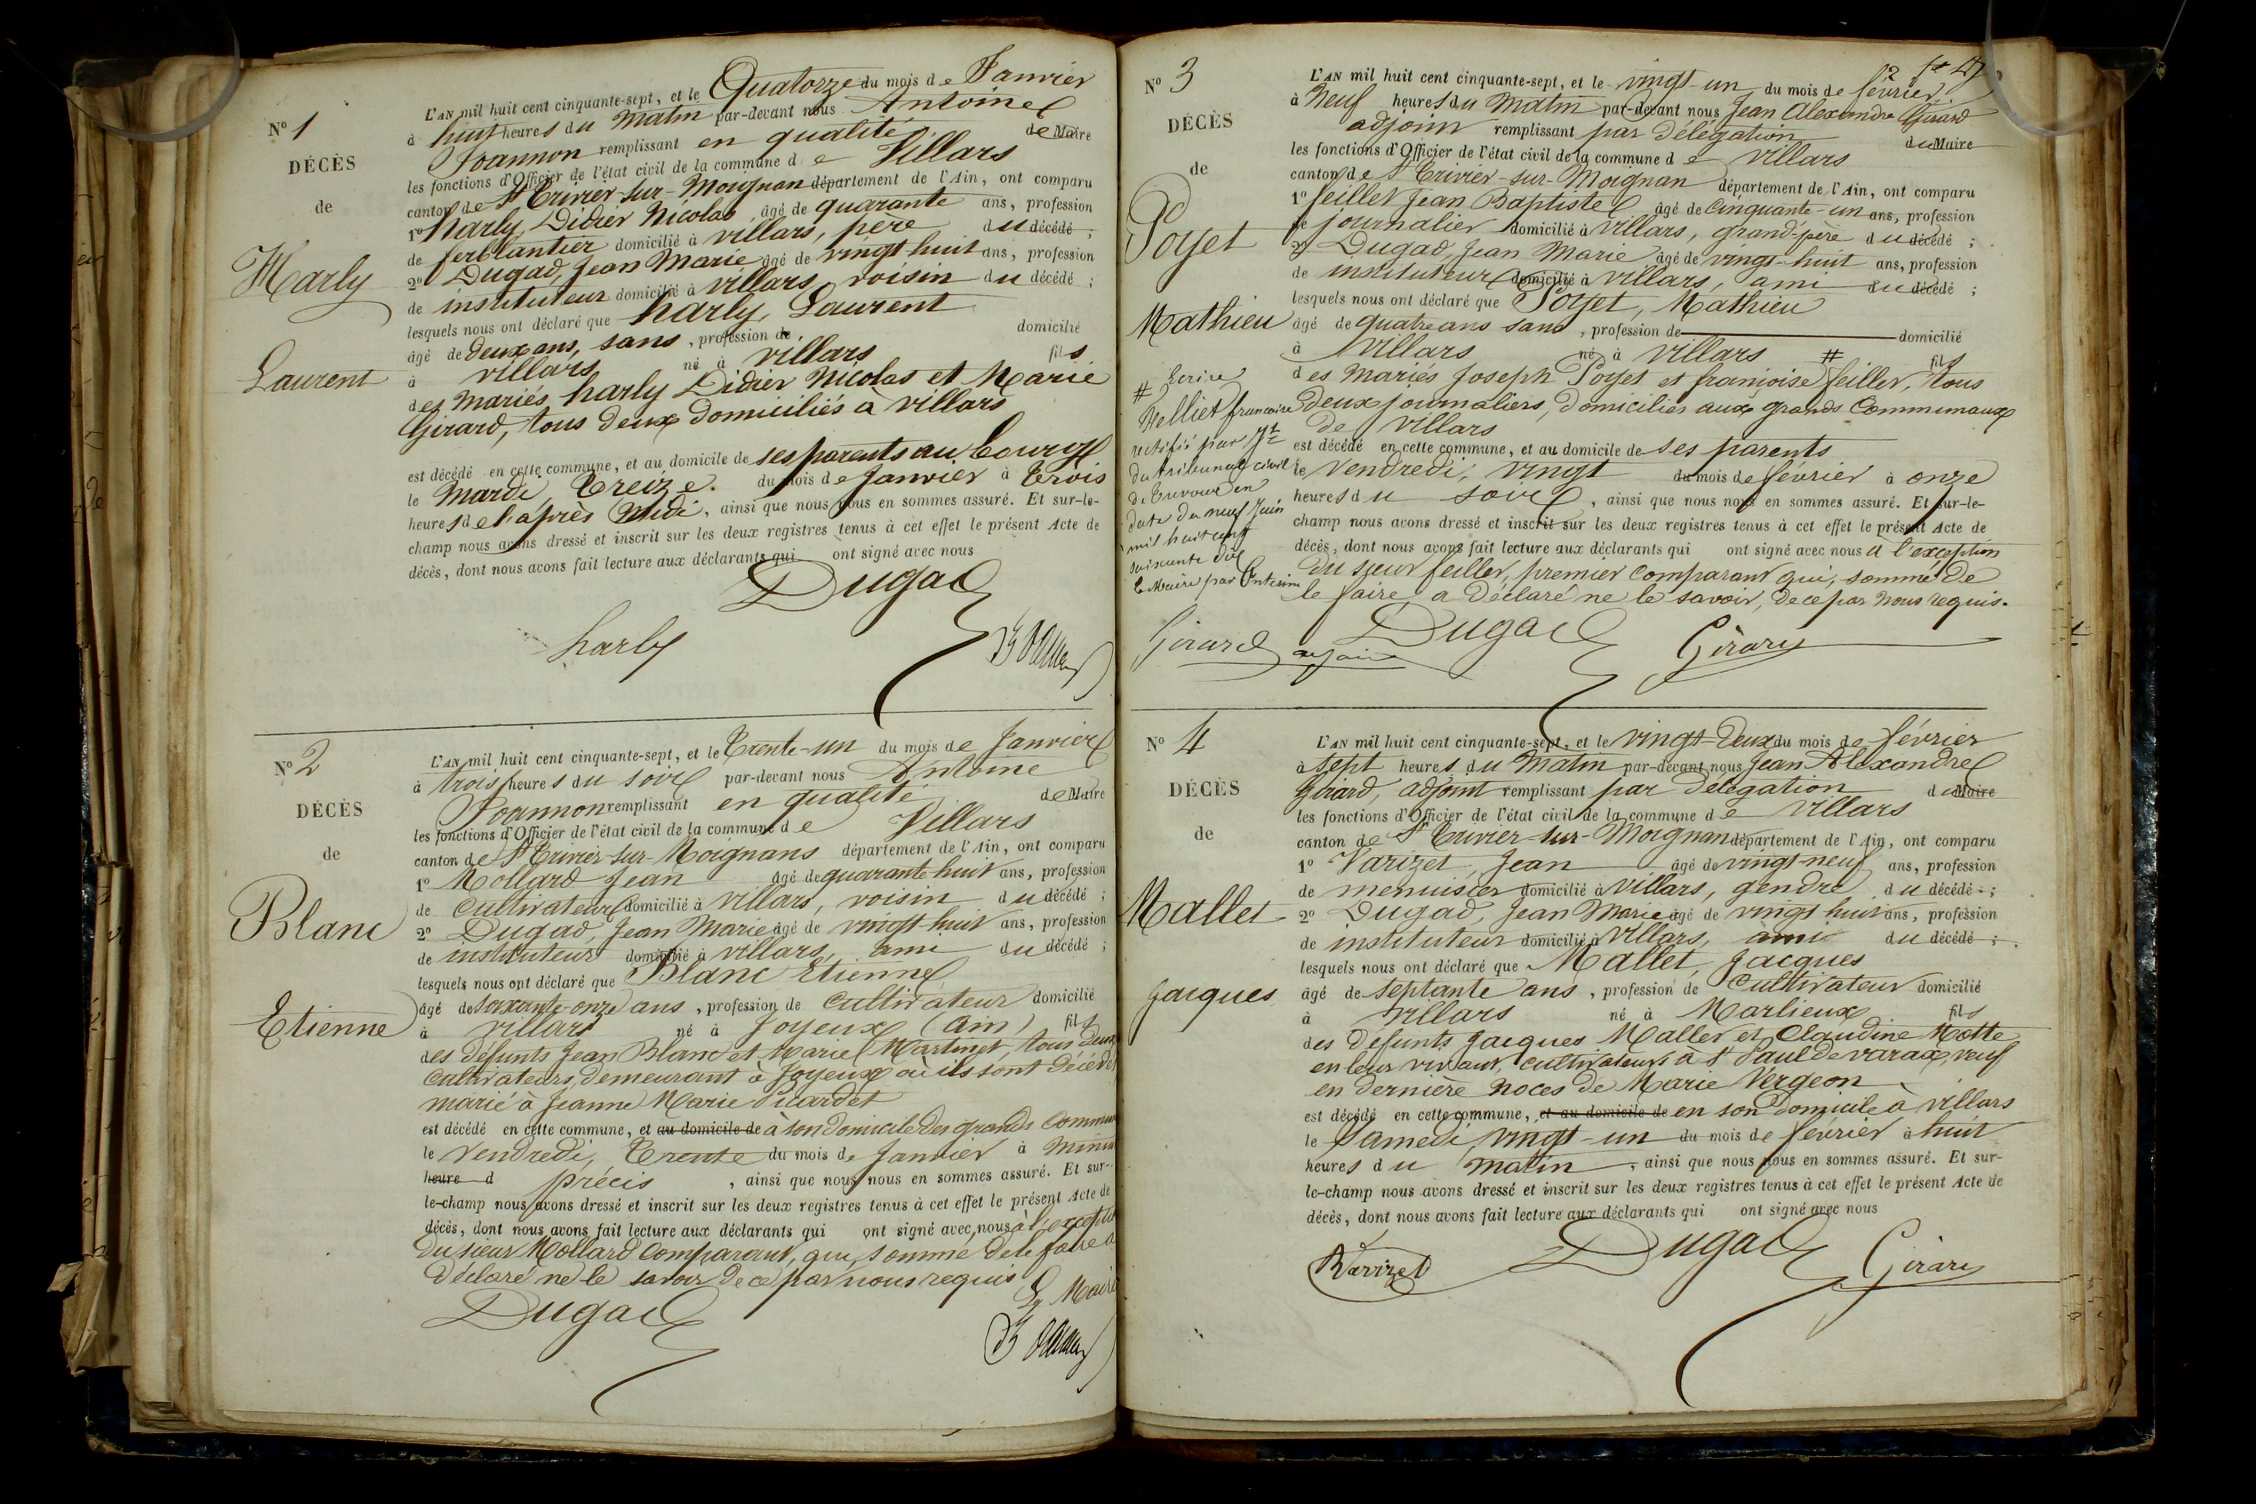 N° 1
DÉCÈS
de
Harly
Laurent
L'AN mil huit cent cinquante-sept, et le Quatorze du mois de Janvier
à huit heures du Matin par-devant nous Antoine
Joannon remplissant en qualité de Maire
les fonctions d'Officier de l'état civil de la commune de Villars
canton de St Trivier-sur-Moignan département de l'Ain, ont comparu
1° harly, Didier Nicolas, âgé de quarante ans, profession
de ferblantier domicilié à villars, père du décédé ;
2° Dugad, Jean Marie âgé de vingt huit ans, profession
de instituteur domicilié à villars, voisin du décédé ;
lesquels nous ont déclaré que harly, Laurent
âgé de deux ans, sans, profession de domicilié
à villars né à villars fils
des mariés harly Didier Nicolas et Marie
Girard, tous deux domiciliés à villars
est décédé en cette commune, et au domicile de ses parents au bourg
le Mardi, Treize du mois de Janvier à Trois
heures de l'après Midi, ainsi que nous nous en sommes assuré. Et sur-le-
champ nous avons dressé et inscrit sur les deux registres tenus à cet effet le présent Acte de
décès, dont nous avons fait lecture aux déclarants qui ont signé avec nous
Dugad
harly
N° 2
DÉCÈS
de
Blanc
Etienne
L'AN mil huit cent cinquante-sept, et le Trente-un du mois de Janvier
à trois heures du soir par-devant nous Antoine
Joannon remplissant en qualité de Maire
les fonctions d'Officier de l'état civil de la commune de Villars
canton de St Trivier-sur-Moignans département de l'Ain, ont comparu
1° Mollard Jean âgé de quarante huit ans, profession
de cultivateur domicilié à villars, voisin du décédé ;
2° Dugad, Jean Marie âgé de vingt huit ans, profession
de instituteur domicilié à villars, ami du décédé ;
lesquels nous ont déclaré que Blanc Etienne
âgé de soixante onze ans, profession de cultivateur domicilié
à villars né à Joyeux (Ain) fils
des défunts Jean Blanc et Marie Martinet, tous deux
cultivateurs, demeurant à Joyeux où ils sont décédés
marié à Jeanne Marie Picardet
est décédé en cette commune, et au domicile de à son domicile des grands Commun
le Vendredi, Trente du mois de Janvier à Minuit
heure d précis, ainsi que nous nous en sommes assuré. Et sur-
le-champ nous avons dressé et inscrit sur les deux registres tenus à cet effet le présent Acte de
décès, dont nous avons fait lecture aux déclarants qui ont signé avec nous à l'exception
du sieur Mollard comparant, qui, sommé de le faire a
déclaré ne le savoir de ce par nous requis
Le Maire
Dugad
N° 3
DÉCÈS
de
Poyet
Mathieu
L'AN mil huit cent cinquante-sept, et le vingt-un du mois de février
à Neuf heures du Matin par-devant nous Jean Alexandre Girard
adjoint remplissant par délégation du Maire
les fonctions d'Officier de l'état civil de la commune de villars
canton de St Trivier-sur-Moignan département de l'Ain, ont comparu
1° feillet Jean Baptiste âgé de cinquante-un ans, profession
de journalier domicilié à villars, grand-père du décédé ;
2° Dugad, Jean Marie âgé de vingt-huit ans, profession
de instituteur domicilié à villars, ami du décédé ;
lesquels nous ont déclaré que Poyet, Mathieu
âgé de quatre ans sans, profession de domicilié
à Villars né à villars # fils
des mariés Joseph Poyet et françoise feillet, tous
deux journaliers, domiciliés aux grands Communaux
de Villars
est décédé en cette commune, et au domicile de ses parents
le Vendredi, vingt du mois de février à onze
heures du soir, ainsi que nous nous en sommes assuré. Et sur-le-
champ nous avons dressé et inscrit sur les deux registres tenus à cet effet le présent Acte de
décès, dont nous avons fait lecture aux déclarants qui ont signé avec nous à l'exception
du sieur feillet, premier comparant qui, sommé de
le faire a déclaré ne le savoir, de ce par nous requis.
# Ecrire
Velliet francoise
rectifié par Jt
du tribunal civil
de Trevoux en
date du neuf Juin
mil huit cent
soixante dix
Le Maire par Interim
Girard adjoint
Dugad
Girard
N° 4
DÉCÈS
de
Mallet
Jacques
L'AN mil huit cent cinquante-sept, et le vingt-Deux du mois de février
à sept heures du Matin par-devant nous Jean Alexandre
Girard adjoint remplissant par délégation du Maire
les fonctions d'Officier de l'état civil de la commune de Villars
canton de St Trivier-sur-Moignan département de l'Ain, ont comparu
1° Varizet, Jean âgé de vingt-neuf ans, profession
de menuisier domicilié à villars, gendre du décédé ;
2° Dugad, Jean Marie âgé de vingt huit ans, profession
de instituteur domicilié à villars, ami du décédé ;
lesquels nous ont déclaré que Mallet, Jacques
âgé de septante ans, profession de Cultivateur domicilié
à villars né à Marlieux fils
des défunts Jacques Mallet et Claudine Motte
en leur vivant, cultivateurs à St Paul de varax, veuf
en dernière noces de Marie Vergeon
est décédé en cette commune, et au domicile de en son domicile à villars
le Samedi, vingt-un du mois de février à huit
heures du matin, ainsi que nous nous en sommes assuré. Et sur-
le-champ nous avons dressé et inscrit sur les deux registres tenus à cet effet le présent Acte de
décès, dont nous avons fait lecture aux déclarants qui ont signé avec nous
Varizet
Dugad
Girard